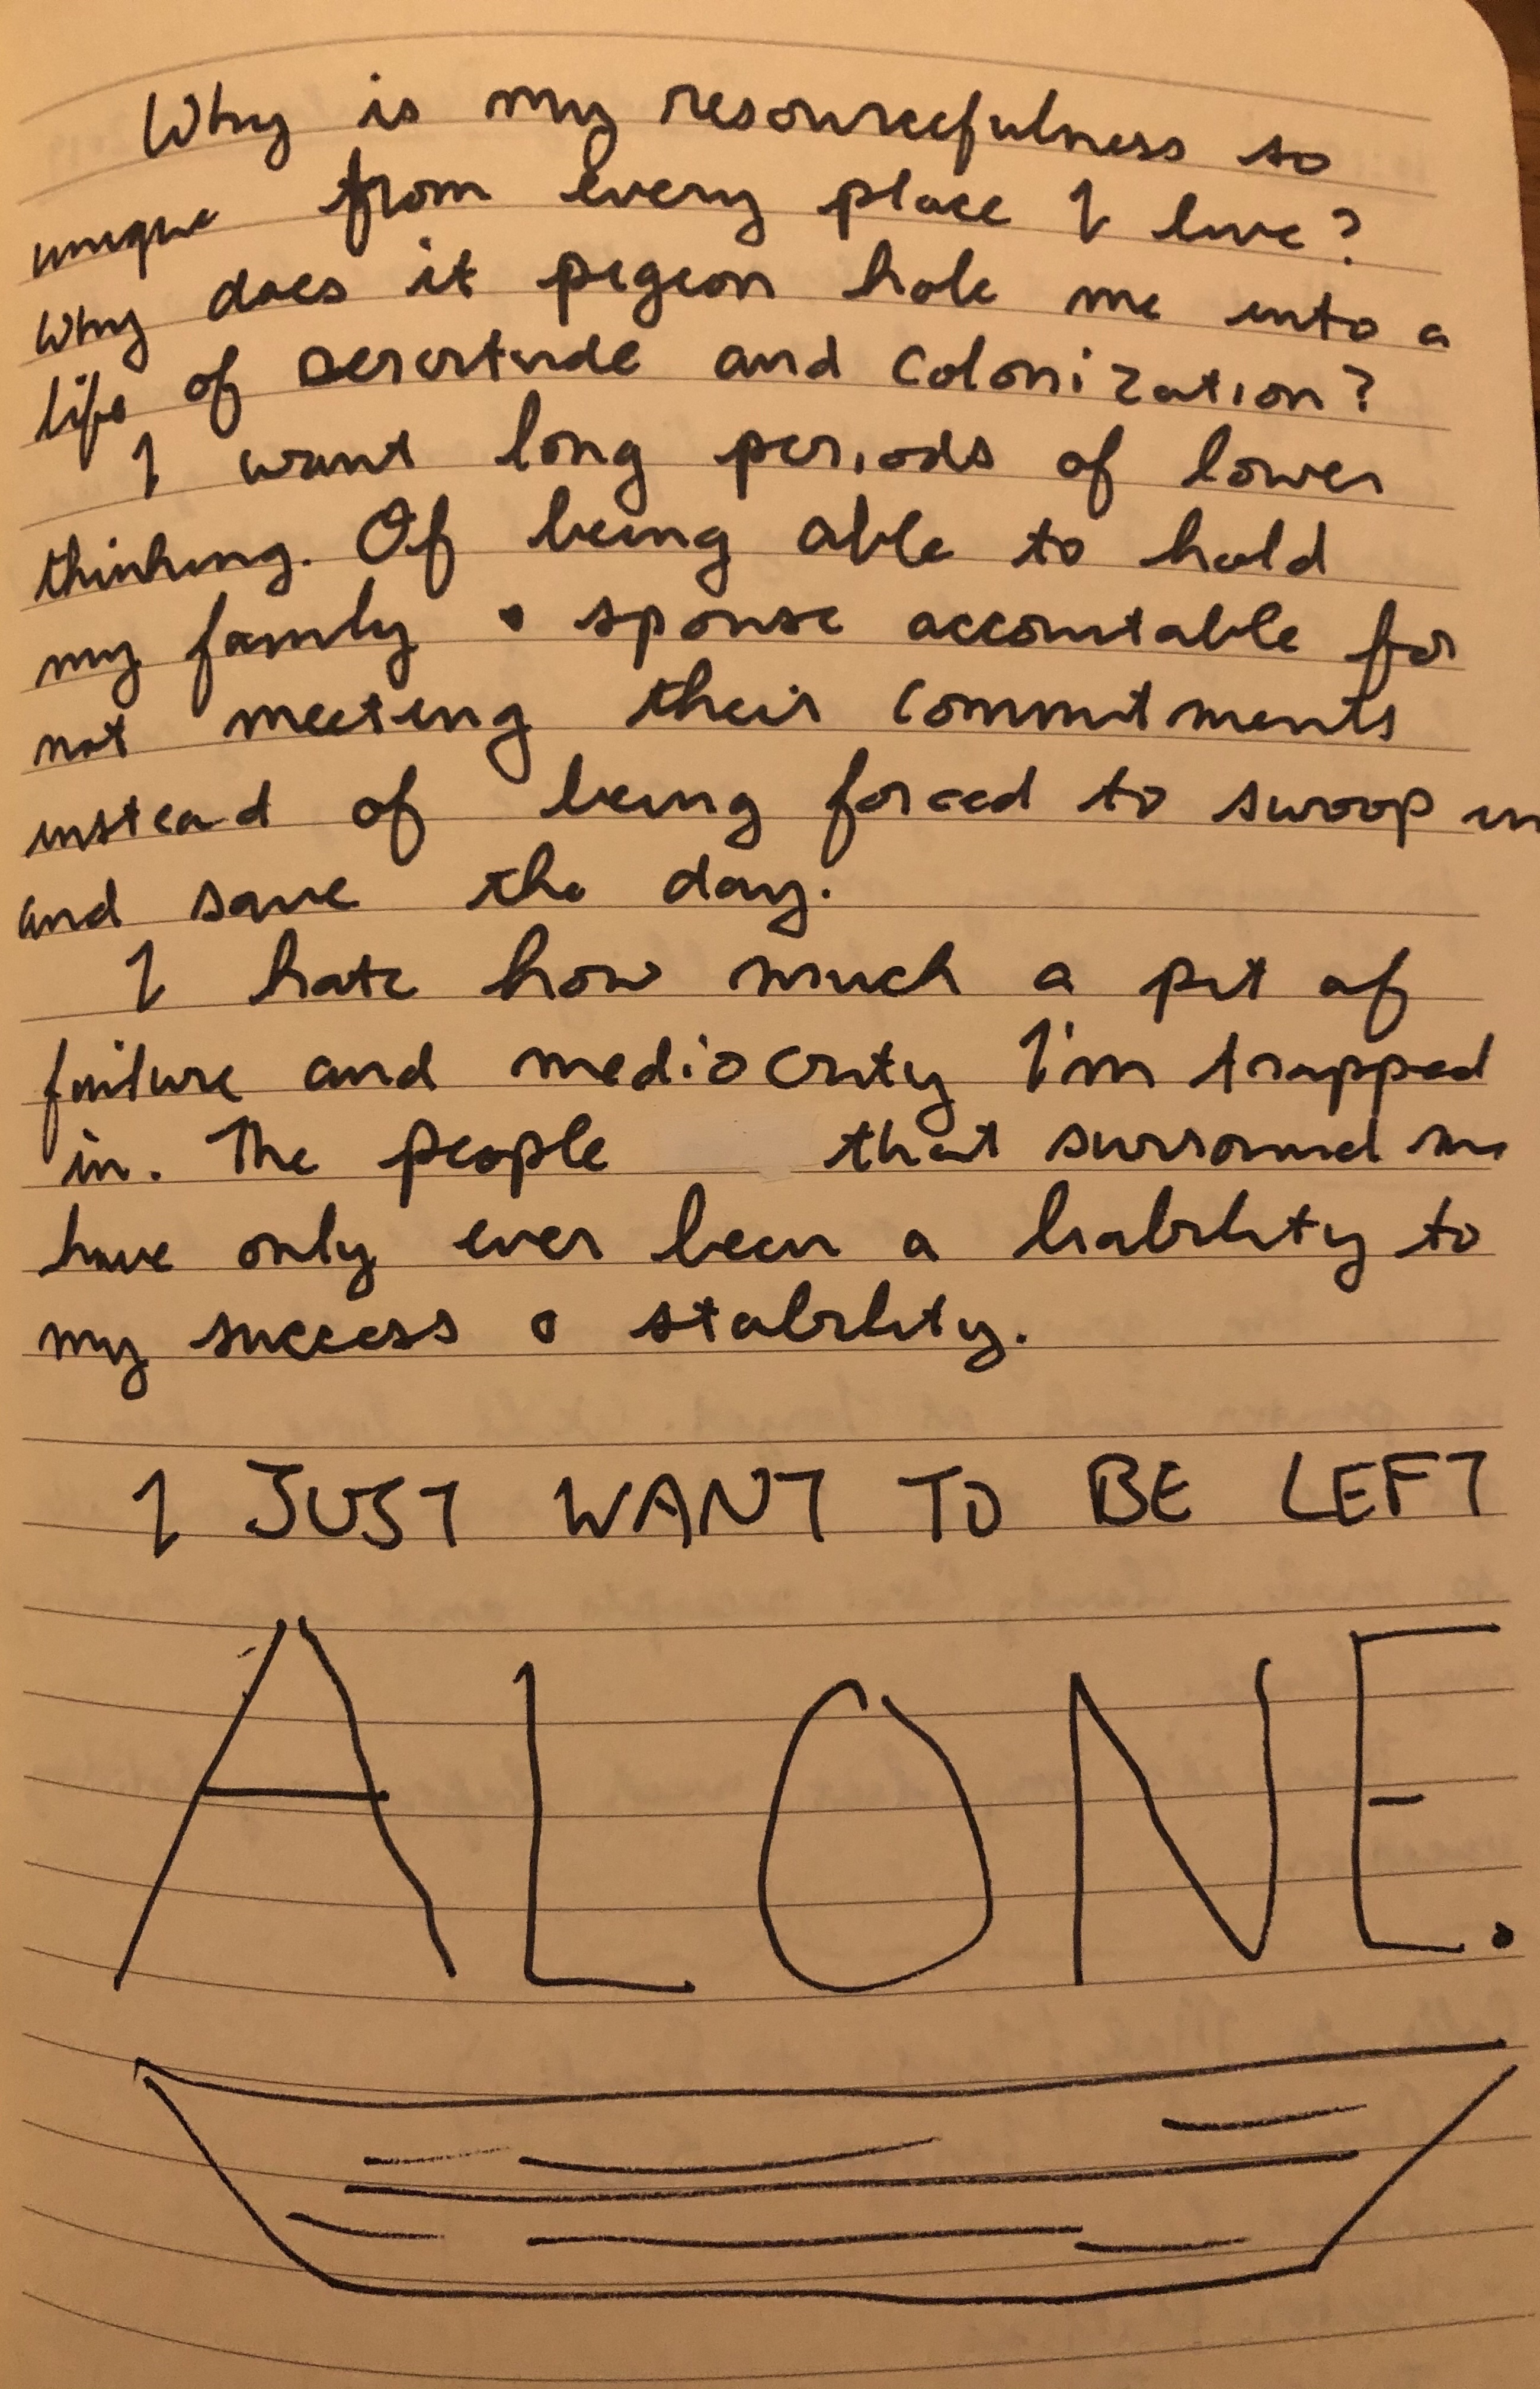 Why is my resourcefulness so
unique from every place I live?
Why does it pigeon hole me into a
life of servitude and colonization?
I want long periods of lower
thinking. Of being able to hold
my family & spouse accountable for
not meeting their commitments
instead of being forced to swoop in
and save the day.
I hate how much a pit of
failure and mediocrity I'm trapped
in. The people that surround me
have only ever been a liability to
my success & stability.
I JUST WANT TO BE LEFT
ALONE.